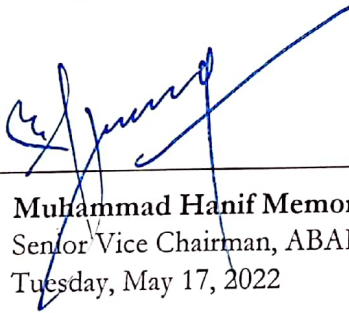 Muhammad Hanif Memo
Senior Vice Chairman, ABA
Tuesday, May 17, 2022